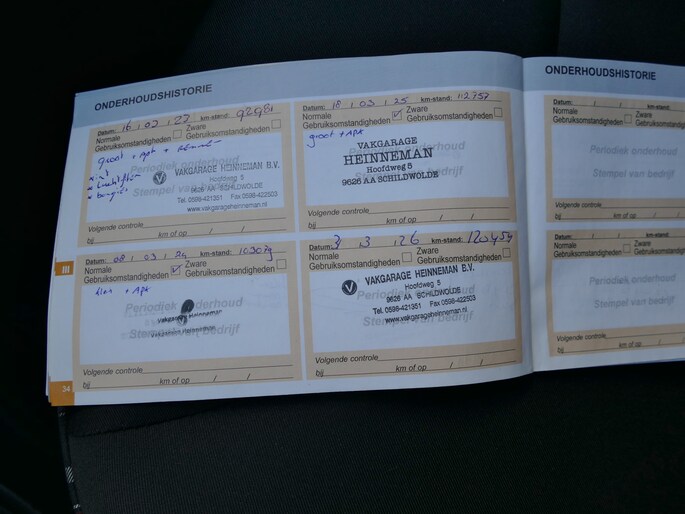 ONDERHOUDSHISTORIE
Datum: 16 / 03 / 23 km-stand:
Normale Gebruiksomstandigheden
Zware Gebruiksomstandigheden
groot + apk +
Periodiek onderhoud
Stempel van bedrijf
VAKGARAGE HEINNEMAN B.V.
Hoofdweg 5
9626 AA SCHILDWOLDE
Tel. 0598-421351 Fax 0598-422503
www.vakgarageheinneman.nl
Volgende controle
bij km of op / /
Datum: 18 / 03 / 25 km-stand: 112757
Normale Gebruiksomstandigheden
Zware Gebruiksomstandigheden
groot + Apk
VAKGARAGE
HEINNEMAN
Hoofdweg 5
9626 AA SCHILDWOLDE
Volgende controle
bij km of op / /
III
Datum: 08 / 03 / 24 km-stand:
Normale Gebruiksomstandigheden
Zware Gebruiksomstandigheden
klein + Apk
Periodiek onderhoud
Vakgarage Heinneman
Stempel van bedrijf
Volgende controle
bij km of op / /
Datum: 3 / 3 / 26 km-stand: 120454
Normale Gebruiksomstandigheden
Zware Gebruiksomstandigheden
Periodiek onderhoud
Stempel van bedrijf
VAKGARAGE HEINNEMAN B.V.
Hoofdweg 5
9626 AA SCHILDWOLDE
Tel. 0598-421351 Fax 0598-422503
www.vakgarageheinneman.nl
Volgende controle
bij km of op / /
34
ONDERHOUDSHISTORIE
Datum: / / km-stand:
Normale
Gebruiksomstandigheden
Periodiek onderhoud
Stempel van bedrijf
Volgende controle
bij km of op
Datum: / / km-stand:
Normale
Gebruiksomstandigheden
Periodiek onderhoud
Stempel van bedrijf
Volgende controle
bij km of op